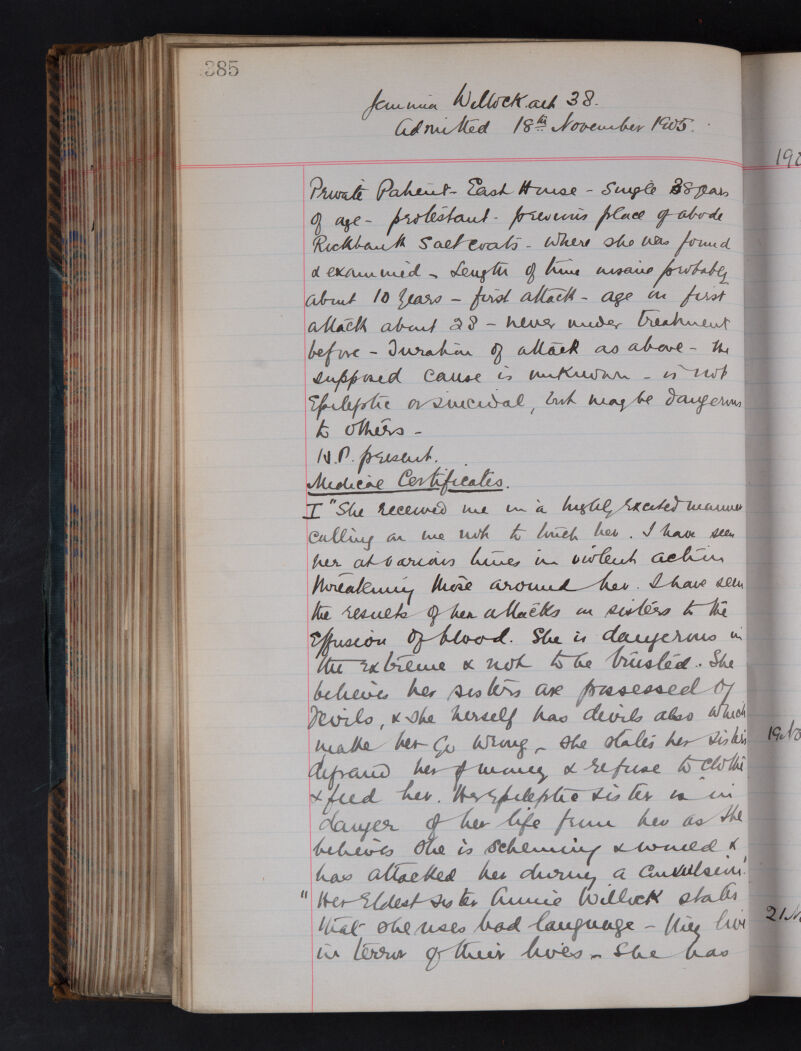 385
Jemima Willock aet 38.
Admitted 18th November 1905.
190
Private Patient - East House - Single 38 years
of age - protestant - previous place of abode
Rockbank Saltcoats - where she was found
& examined - Length of time insane probably
about 10 years - first attack - age on first
attack about 28 - never under treatment
before - Duration of attack as above - the
supposed cause is unknown - is not
Epileptic or suicidal, but may be dangerous
to others -
N.P. present.
Medical Certificates.
I "She received me in a highly excited manner
calling on me not to touch her. I have seen
her at various times in violent action
threatening those around her. I have seen
the results of her attacks on sisters to the
Effusion of blood. She is dangerous in
the extreme & not to be trusted. She
believes her sisters are possessed of
Devils, & she herself has devils also which
make her go wrong - she states her sisters
defraud her of money & refuse to clothe
& feed her. Her Epileptic sister is in
danger of her life from her as she
believes she is scheming & would &
has attacked her during a convulsion".
" Her Eldest sister Annie Willock states
that she uses bad language - they live
in terror of their lives - She has
19 No
21 N